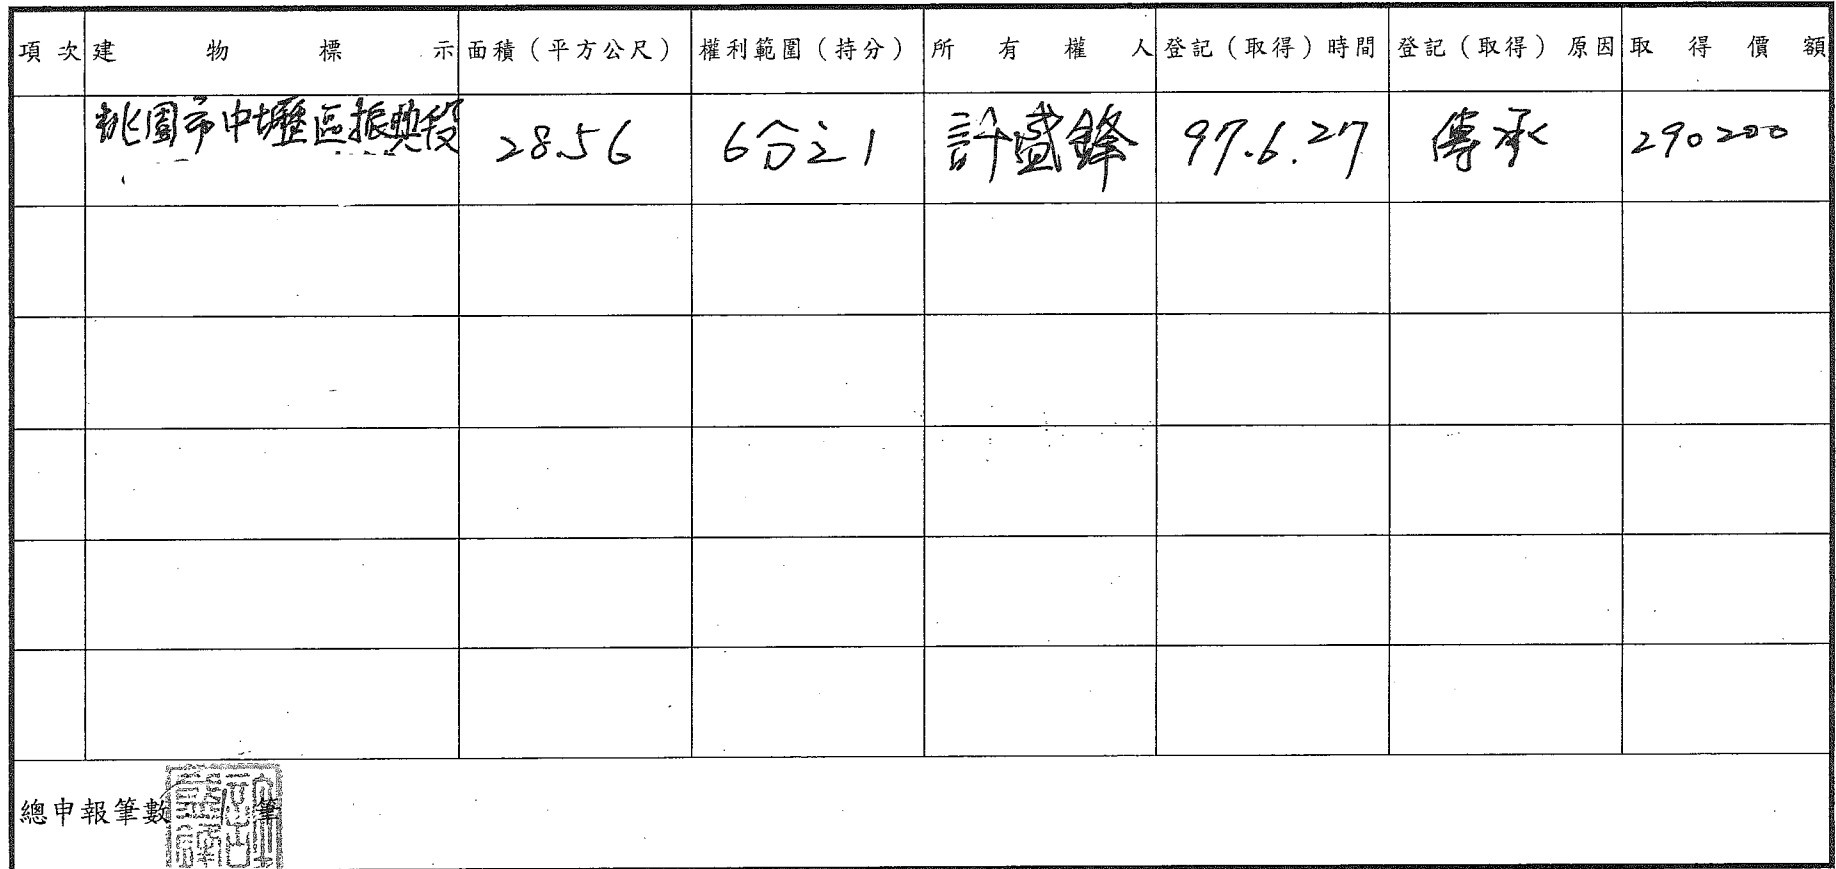 項次 建物標示 面積（平方公尺） 權利範圍（持分） 所有權人 登記（取得）時間 登記（取得）原因 取得價額
桃園市中壢區振興段 28.56 6分之1 許盛鋒 97.6.27 傳承 290200
總申報筆數 筆